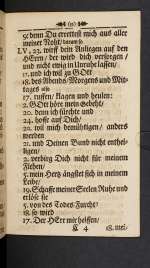 5. denn Du errettest mich aus aller
meiner Noht/ darum so
LV, 23. wirff dein Anliegen auf den
HErrn/ der wird dich versorgen/
und nicht ewig in Unruhe lassen/
17. und ich wil zu GOtt
18. des Abends/ Morgens und Mit-
tages
17. ruffen/ klagen und heulen:
2. GOtt höre mein Gebeht/
20. denn ich fürchte und
24. hoffe auff Dich/
20. will mich demühtigen/ anders
werden
21. und Deinen Bund nicht enthei-
ligen/
2. verbirg Dich nicht für meinem
Flehen/
5. mein Hertz ängstet sich in meinem
Leibe/
19. Schaffe meiner Seelen Ruhe und
erlöse sie
5. von des Todes Furcht/
18. so wird
17. Der HErr mir helffen/
K 4 18. mei-